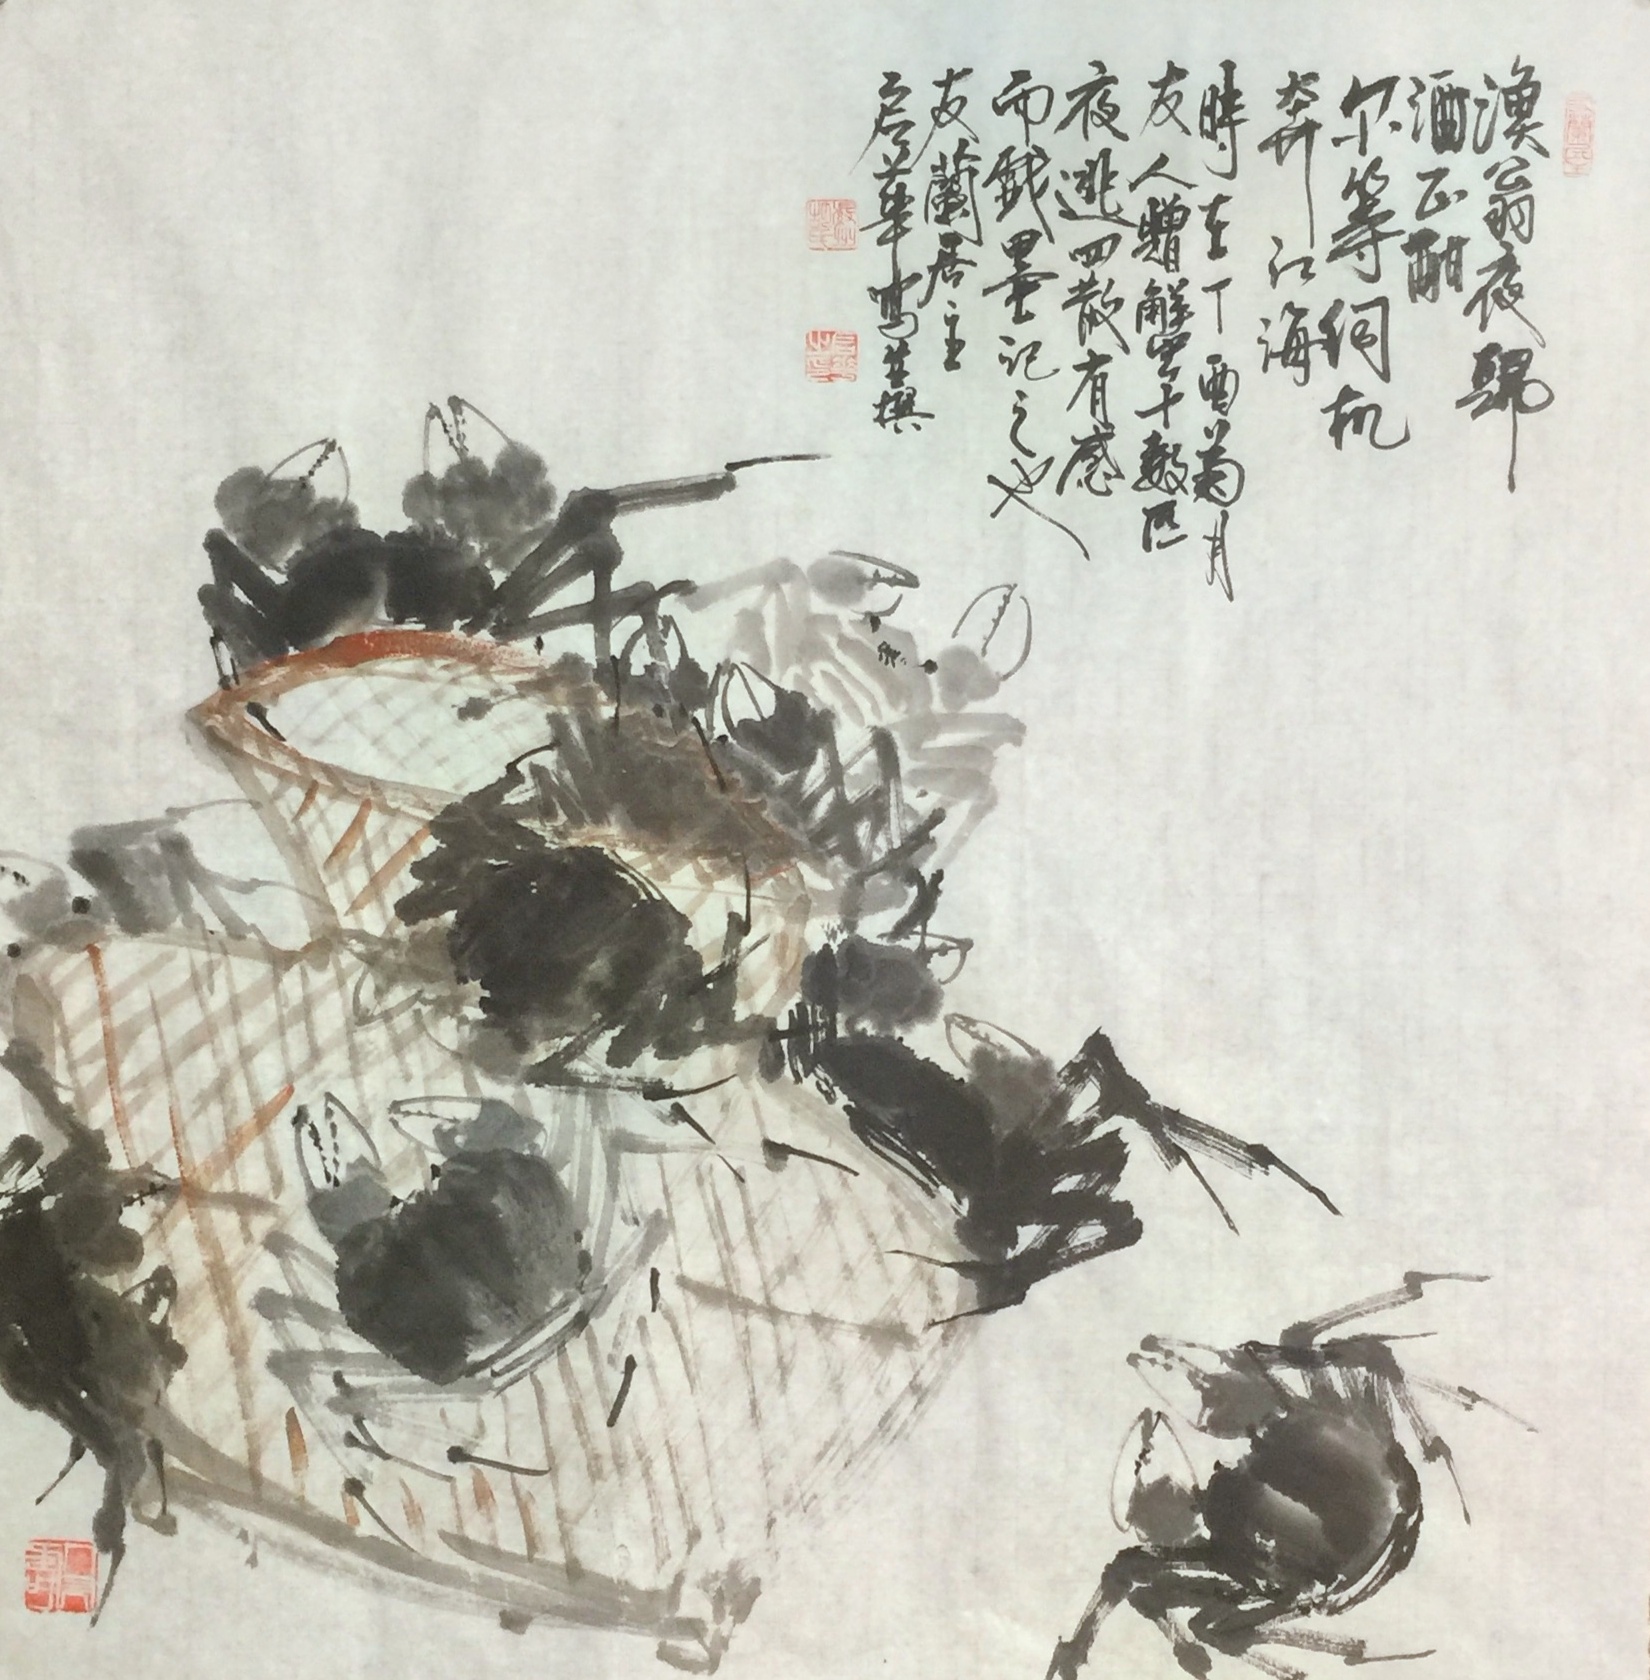 渔翁夜归
酒正酣
尔等伺机
奔江海
時在丁酉菊月
友人贈蟹十數匹
夜逃四散有感
而戲墨記之也
友蘭居主
启華
撰